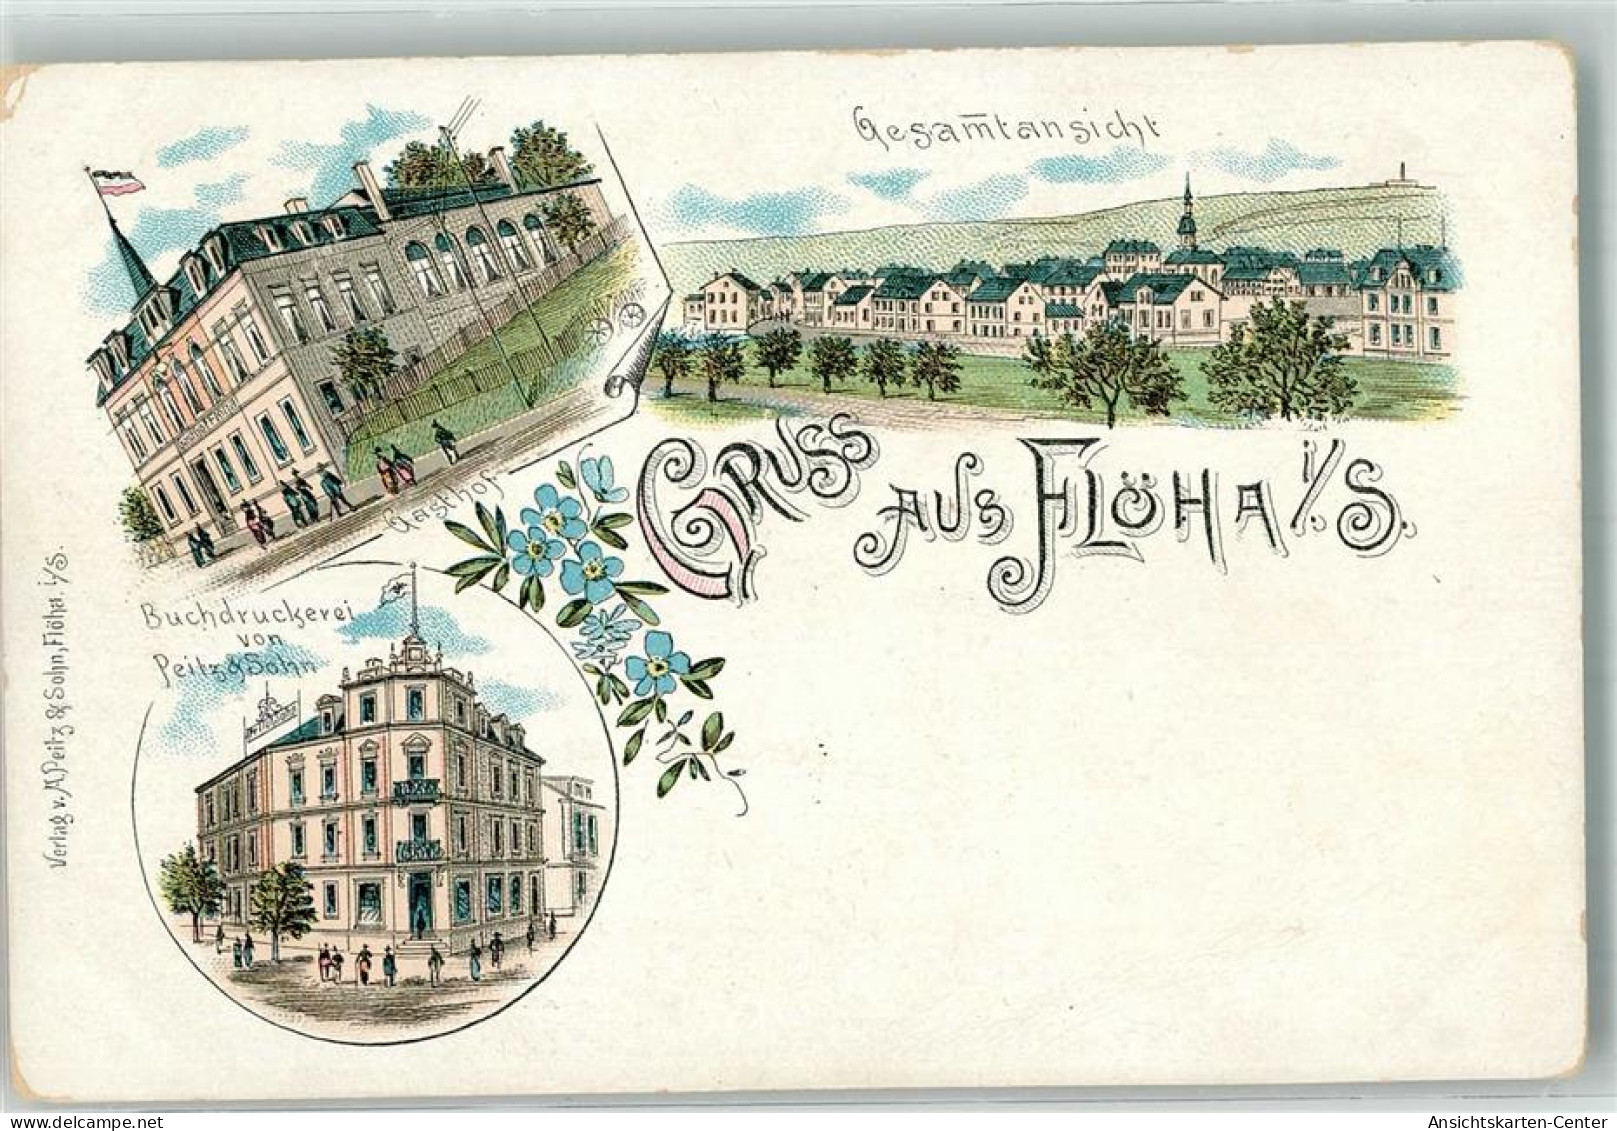 Gesamtansicht
Gasthof
Gruss aus Flöha i/S.
Buchdruckerei
von
Peitz & Sohn
Verlag v. A. Peitz & Sohn, Flöha. i/S.
Ansichtskarten-Center